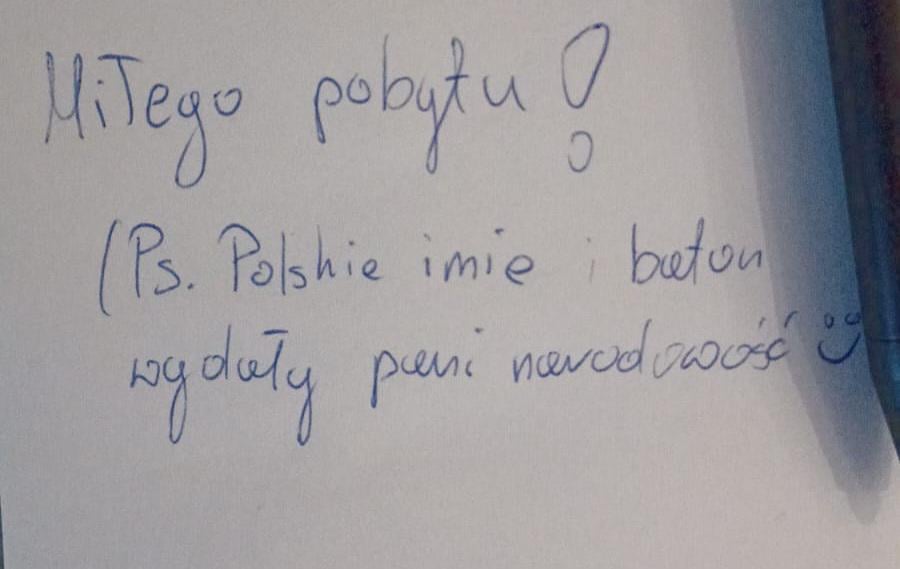 Miłego pobytu!
(Ps. Polskie imie i baton
wydały pani narodowość :)